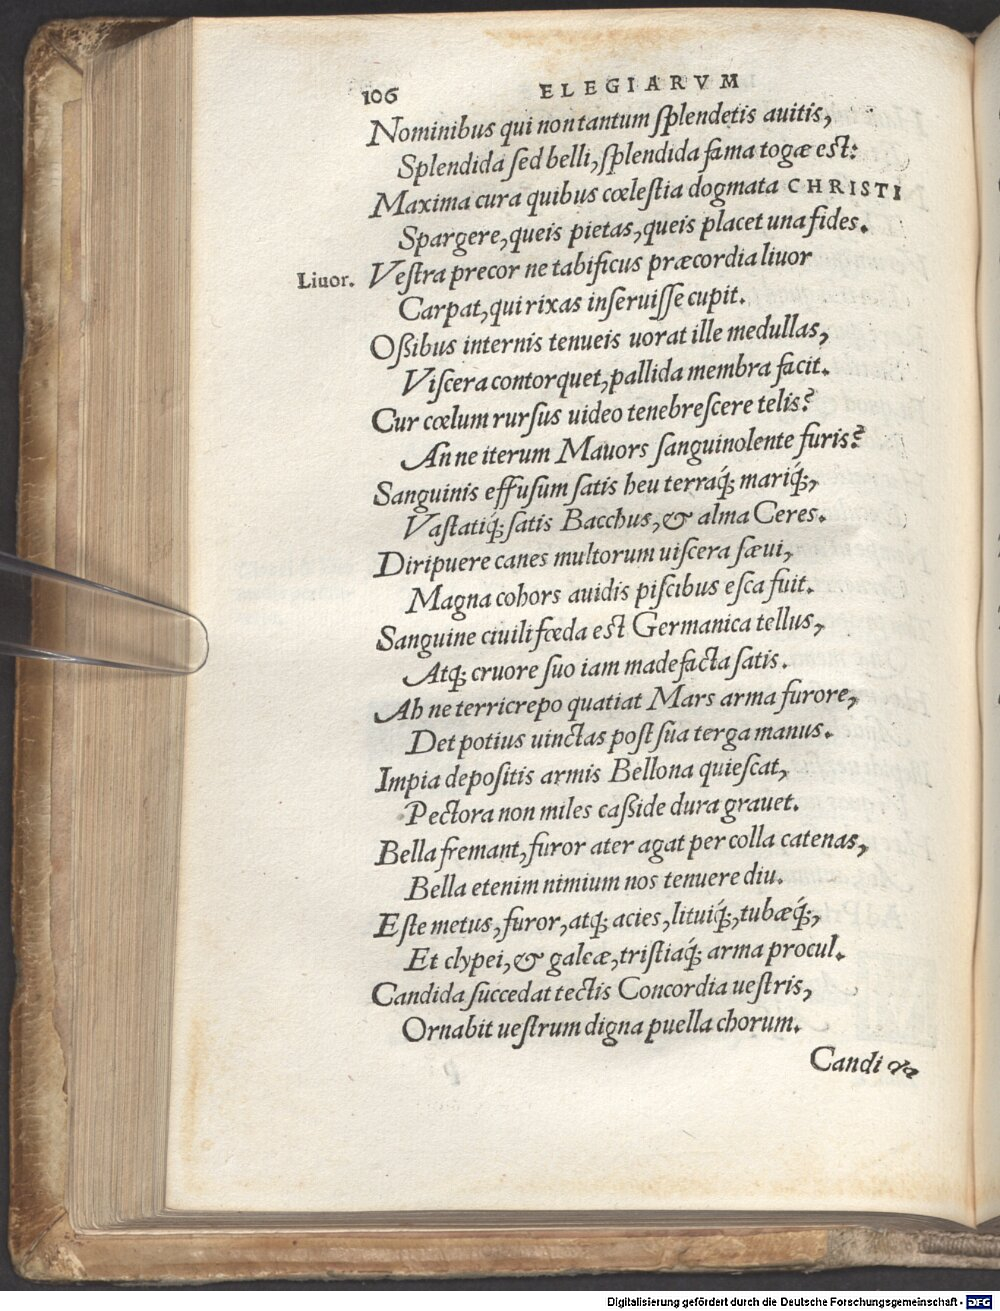 106 ELEGIARVM
Nominibus qui non tantum splendetis avitis,
Splendida sed belli, splendida fama togæ est:
Maxima cura quibus cœlestia dogmata CHRISTI
Spargere, queis pietas, queis placet una fides.
Liuor. Vestra precor ne tabificus præcordia liuor
Carpat, qui rixas inseruisse cupit.
Oßibus internis tenueis uorat ille medullas,
Viscera contorquet, pallida membra facit.
Cur cœlum rursus uideo tenebrescere telis?
An ne iterum Mavors sanguinolente furis?
Sanguinis effusum satis heu terraq́; mariq́;,
Vastatiq́; satis Bacchus, & alma Ceres.
Diripuere canes multorum uiscera sæui,
Magna cohors auidis piscibus esca fuit.
Sanguine ciuili fœda est Germanica tellus,
Atq; cruore suo iam madefacta satis.
Ah ne terricrepo quatiat Mars arma furore,
Det potius uinctas post sua terga manus.
Impia depositis armis Bellona quiescat,
Pectora non miles caßide dura grauet.
Bella fremant, furor ater agat per colla catenas,
Bella etenim nimium nos tenuere diu.
Este metus, furor, atq; acies, lituiq́;, tubæq́;,
Et clypei, & galeæ, tristiaq́; arma procul.
Candida succedat tectis Concordia uestris,
Ornabit uestrum digna puella chorum.
Candida
Digitalisierung gefördert durch die Deutsche Forschungsgemeinschaft - DFG